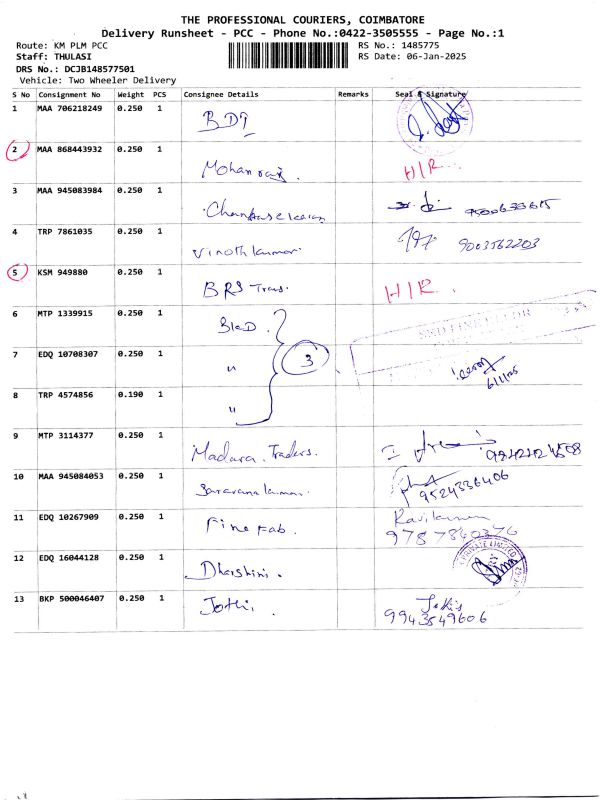 THE PROFESSIONAL COURIERS, COIMBATORE
Delivery Runsheet - PCC - Phone No.:0422-3505555 - Page No.:1
Route: KM PLM PCC
RS No.: 1485775
Staff: THULASI
RS Date: 06-Jan-2025
DRS No.: DCJB148577501
Vehicle: Two Wheeler Delivery
S No Consignment No Weight PCS Consignee Details Remarks Seal & Signature
1 MAA 706218249 0.250 1
2 MAA 868443932 0.250 1 Mohanraj. H/R.
3 MAA 945083984 0.250 1
4 TRP 7861035 0.250 1 Vinoth kumar 9003562203
5 KSM 949880 0.250 1 BRS Trans. H/R.
6 MTP 1339915 0.250 1
7 EDQ 10708307 0.250 1 " 3
8 TRP 4574856 0.190 1 "
9 MTP 3114377 0.250 1 Madura Traders.
10 MAA 945084053 0.250 1 Saravana kumar. 9524336406
11 EDQ 10267909 0.250 1 Fine Fab. Ravikumar
9787840376
12 EDQ 16044128 0.250 1 Dharshini. PRIVATE LIMITED
13 BKP 500046407 0.250 1 Jothi. Jothi
9943549606